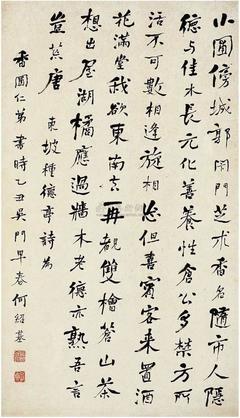 小圃傍城郭閉門芝朮香名隨市人隱
德与佳木長元化善養性倉公多禁方所
活不可數相逢旋相忘但喜賓客來置酒
花滿堂我欲東南去再觀雙檜蒼山茶
想出屋湖橘應過牆木老德亦熟吾言
豈荒唐 東坡種德亭詩為
香圃仁弟書時乙丑吳門早春何紹基